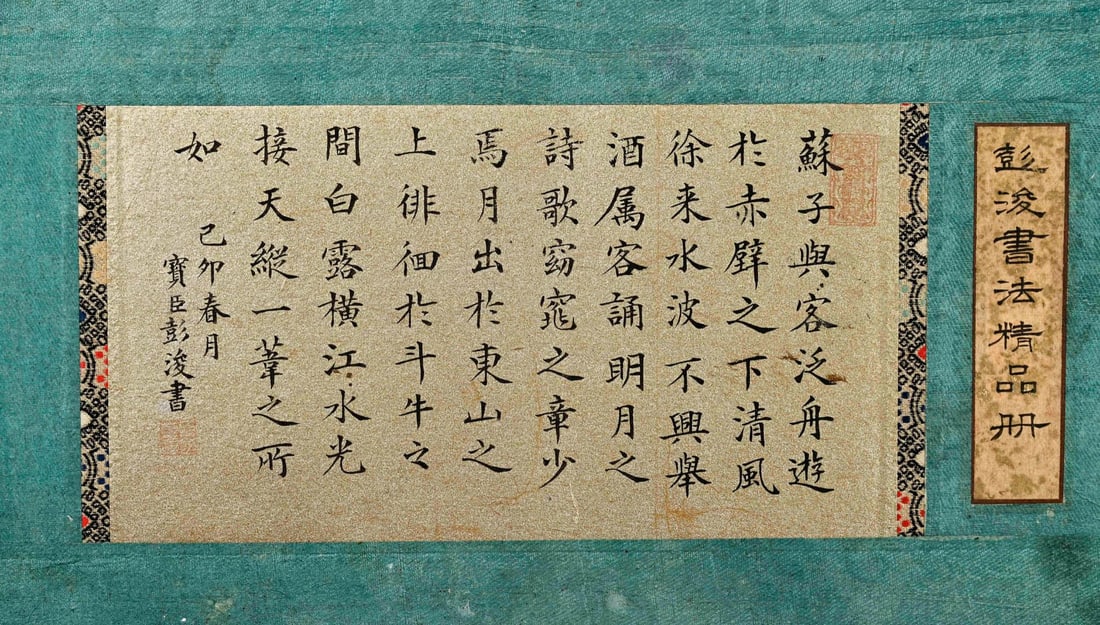 彭浚書法精品册
蘇子與客泛舟遊
於赤壁之下清風
徐来水波不興舉
酒属客誦明月之
詩歌窈窕之章少
焉月出於東山之
上徘徊於斗牛之
間白露橫江水光
接天縦一葦之所
如
己卯春月
寶臣彭浚書